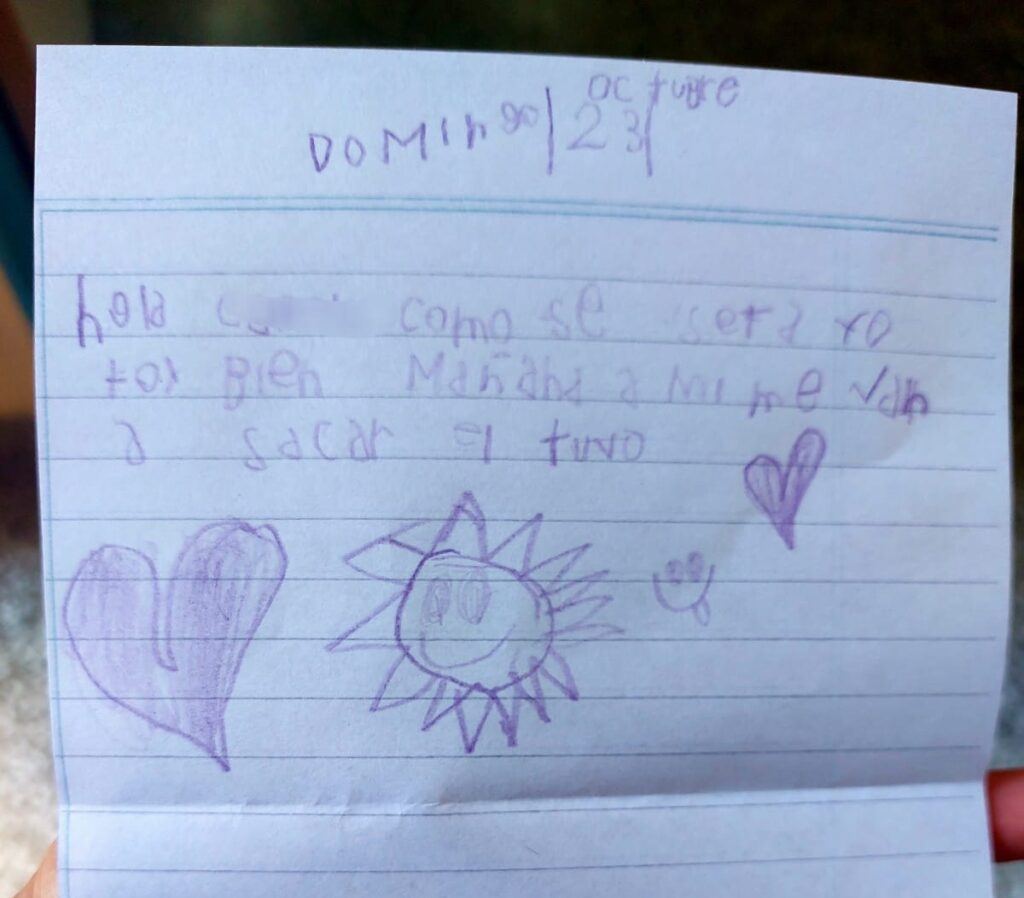 octubre
Domingo|23|
hola como se serà yo
toy Bien Mañana a mi me van
a sacar el tuvo